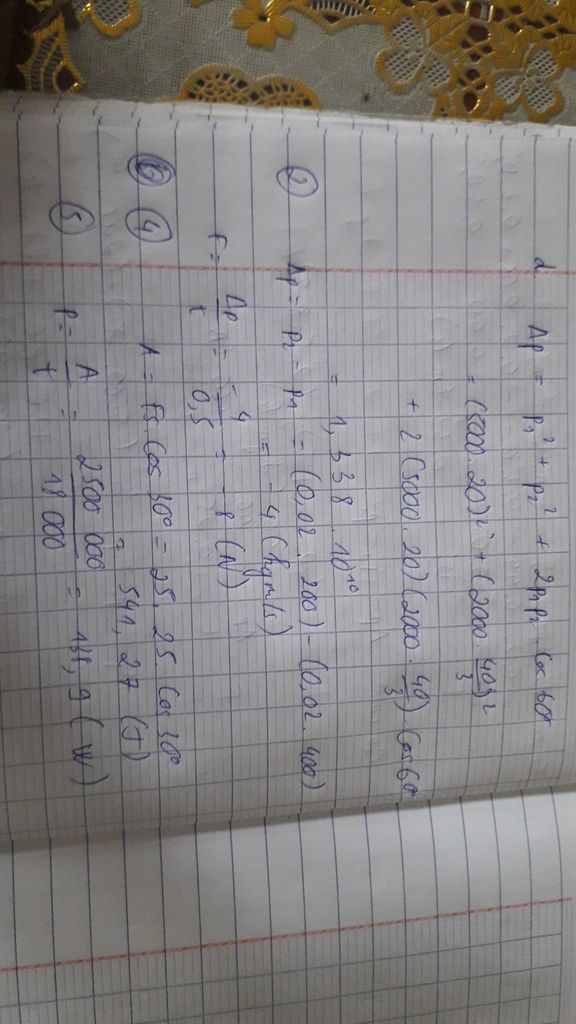 d Δp = p₁² + p₂² + 2p₁p₂ . Cos 60°
= (5000.20)² + (2000. 40/3)²
+ 2 (5000.20) (2000. 40/3) . Cos 60°
= 1,338 . 10¹⁰
② Δp = p₂ - p₁ = (0,02. 200) - (0,02. 400)
= - 4 (kgm/s)
F = Δp/t = -4/0,5 = - 8 (N)
④ A = Fs Cos 30° = 25. 25 Cos 30°
= 541,27 (J)
⑤ P = A/t = 2500 000/18 000 = 138,9 (W)